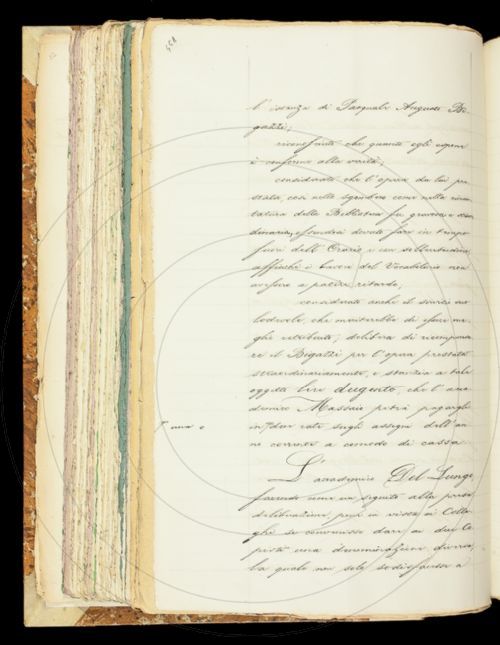 l'istanza di Pasquale Augusto Bi-
gazzi;
riconosciuto che quanto egli espone
è conforme alla verità;
considerato che l'opera da lui pre-
stata, così nello sgombro come nella
della Biblioteca fu gravosa e
dinaria, essendosi dovuto fare in tempo
fuori dell'Orario e con sollecitudine
affinchè i lavori del Vocabolario non
avessero a patire ritardo;
considerato anche il servizio
lodevole, che meriterebbe di esser me-
glio retribuito; delibera di ricompensa-
re il Bigazzi per l'opera prestata
straordinariamente, e stanzia a tale
oggetto lire dugento, che l'acca-
demico Massaio potrà pagargli
in rate sugli assegni dell'an-
no corrente a comodo di cassa.
L'accademico Del Lungo
facendo come un seguito alla presa
deliberazione, pone in vista ai Colle-
ghi se convenisse dare ai due Co-
pisti una denominazione diversa,
la quale non solo sodisfacesse a